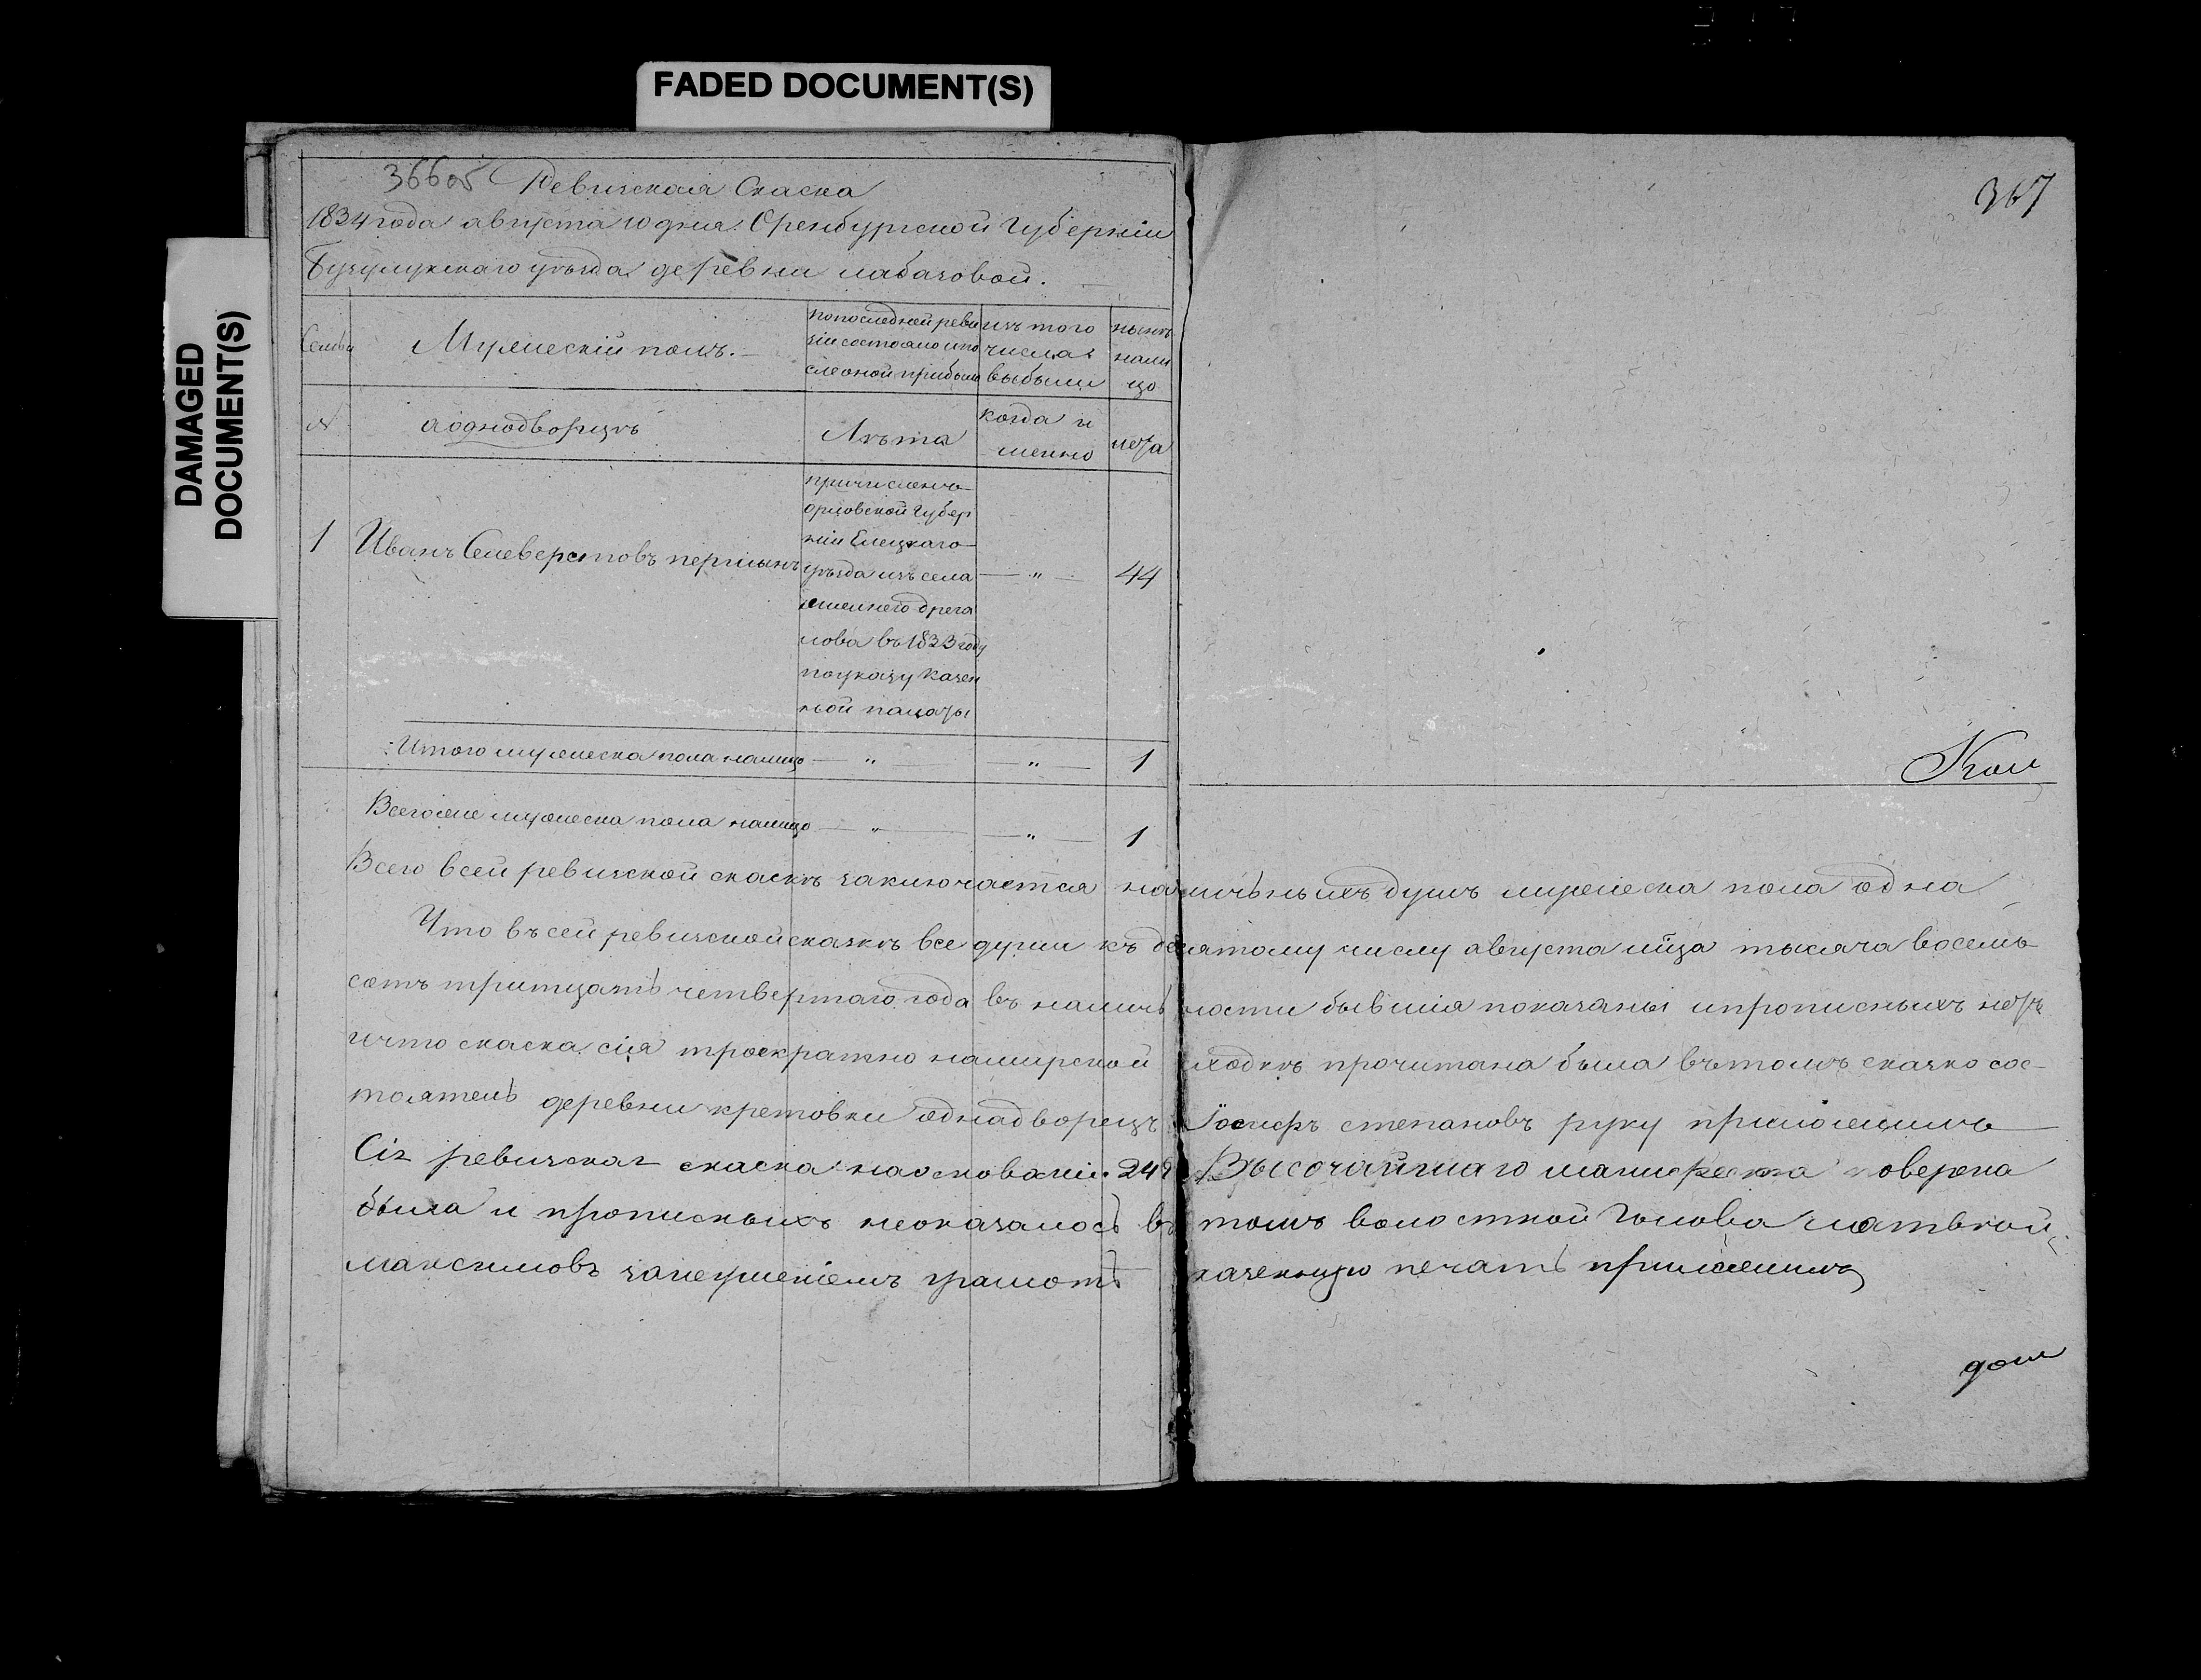 FADED DOCUMENT(S)
DAMAGED
DOCUMENT(S)
366об Ревизская Скаска
1834 года августа 10 дня. Оренбургской Губернiи
Бузулукскаго уѣзда деревни лабазовой.
Семьи
Мужескiй полъ.
по последней реви
зiи состояло и по
сле оной прибыло
изъ того
числа
выбыли
нынѣ
нали
цо
№
аоднодворцъ
Лѣта
когда и
менно
лѣта
1
Иванъ Селеверстовъ
причисленъ
орловской губер
нiи Елецкаго
уѣзда изъ села
нова въ 1833 году
поуказу казен
ной палаты
"
44
Итого мужеска пола налицо — " — " — 1
Всегоже мужеска пола налицо — " — " — 1
Всего всей ревизской скаскѣ заключается наличьныхъ душъ мужеска пола одна
Что въ сей ревизской сказкѣ все души къ десятому числу августа мца тысяча восемь
сотъ тритцать четвертаго года въ наличьности бывшiя показаны и прописныхъ нѣтъ
ичто скаска сiя троекратно намирской сходкѣ прочитана была въ томъ сказко сос-
тоятель деревни кретовки однадворецъ Iосифъ степановъ руку приложилъ
Сiя ревизская скаска наоснованiи Высочайшаго манифеста поверена
была и прописныхъ неоказалось въ томъ волостной Голова матвѣй
максимовъ занеуменiемъ грамоть казенную печать приложилъ
367
Кол